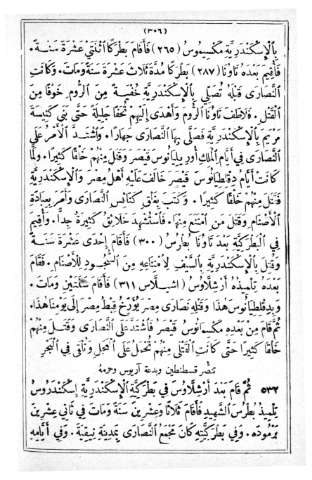 (٣٠٦)
بِالْإِسْكَنْدَرِيَّةِ مَكْسِيمُوسُ (٢٦٥) فَأَقَامَ بَطْرَكًا اثْنَتَيْ عَشْرَةَ سَنَةً.
فَأُقِيمَ بَعْدَهُ تَاوُنَا (٢٨٧) بَطْرَكًا مُدَّةَ ثَلَاثَ عَشْرَةَ سَنَةً وَمَاتَ. وَكَانَتِ
النَّصَارَى قَبْلَهُ تُصَلِّي بِالْإِسْكَنْدَرِيَّةِ خُفْيَةً مِنَ الرُّومِ خَوْفًا مِنَ
الْقَتْلِ. فَلَاطَفَ تَاوُنَا الرُّومَ وَأَهْدَى إِلَيْهِمْ تُحَفًا جَلِيلَةً حَتَّى بَنَى كَنِيسَةَ
مَرْيَمَ بِالْإِسْكَنْدَرِيَّةِ فَصَلَّى بِهَا النَّصَارَى جِهَارًا. وَاشْتَدَّ الْأَمْرُ عَلَى
النَّصَارَى فِي أَيَّامِ الْمَلِكِ أُورِلِيَانُوسَ قَيْصَرَ وَقَتَلَ مِنْهُمْ خَلْقًا كَثِيرًا. وَلَمَّا
كَانَتْ أَيَّامُ دِقْلِطِيَانُوسَ قَيْصَرَ خَالَفَ عَلَيْهِ أَهْلُ مِصْرَ وَالْإِسْكَنْدَرِيَّةِ
فَقَتَلَ مِنْهُمْ خَلْقًا كَثِيرًا. وَكَتَبَ بِغَلْقِ كَنَائِسِ النَّصَارَى وَأَمَرَ بِعِبَادَةِ
الْأَصْنَامِ وَقَتَلَ مَنِ امْتَنَعَ مِنْهَا. فَاسْتُشْهِدَ خَلَائِقُ كَثِيرَةٌ جِدًّا. وَأُقِيمَ
فِي الْبَطْرَكِيَّةِ بَعْدَ تَاوُنَا بُطْرُسُ (٣٠٠) فَأَقَامَ إِحْدَى عَشْرَةَ سَنَةً
وَقُتِلَ بِالْإِسْكَنْدَرِيَّةِ بِالسَّيْفِ لِامْتِنَاعِهِ مِنَ السُّجُودِ لِلْأَصْنَامِ. فَقَامَ
بَعْدَهُ تِلْمِيذُهُ أَرْشِلَاوُسُ (اشيلاس ٣١١) فَأَقَامَ سَنَتَيْنِ وَمَاتَ.
وَبِدِقْلِطِيَانُوسَ هَذَا وَقَتْلِهِ نَصَارَى مِصْرَ يُؤَرِّخُ قِبْطُ مِصْرَ إِلَى يَوْمِنَا هَذَا.
ثُمَّ قَامَ مِنْ بَعْدِهِ مَكْسِمَانُوسُ قَيْصَرُ فَاشْتَدَّ عَلَى النَّصَارَى وَقَتَلَ مِنْهُمْ
خَلْقًا كَثِيرًا حَتَّى كَانَتِ الْقَتْلَى مِنْهُمْ تُحْمَلُ عَلَى الْعَجَلِ وَتُلْقَى فِي الْبَحْرِ
تنصُّر قسطنطين وبدعة آريوس وحرمهُ
٥٣٢ ثُمَّ قَامَ بَعْدَ أَرْشِلَاوُسَ فِي بَطْرَكِيَّةِ الْإِسْكَنْدَرِيَّةِ إِسْكَنْدَرُوسُ
تِلْمِيذُ بُطْرُسَ الشَّهِيدِ فَأَقَامَ ثَلَاثًا وَعِشْرِينَ سَنَةً وَمَاتَ فِي ثَانِي عِشْرِينَ
بَرْمُودَه. وَفِي بَطْرَكِيَّتِهِ كَانَ مَجْمَعُ النَّصَارَى بِمَدِينَةِ نِيقِيَةَ. وَفِي أَيَّامِهِ